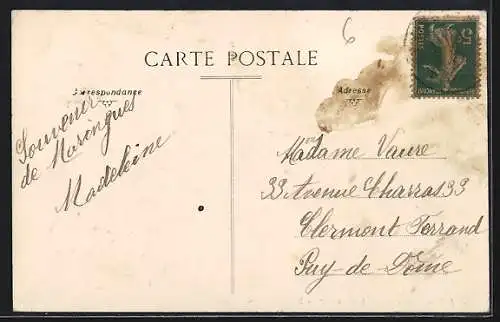 6
CARTE POSTALE
Correspondance
Adresse
Souvenir
de Maringues
Madeleine
Madame Vaure
33 Avenue Charras 33
Clermont Ferrand
Puy-de-Dôme